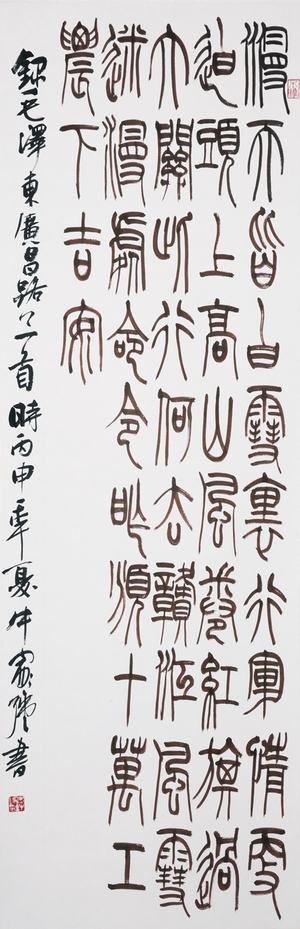 漫天皆白雪裏行軍情更
迫頭上高山風卷紅旗過
大關此行何去贛江風雪
迷漫處命令昨頒十萬工
農下吉安
錄毛澤東廣昌路一首時丙申年夏牛家書